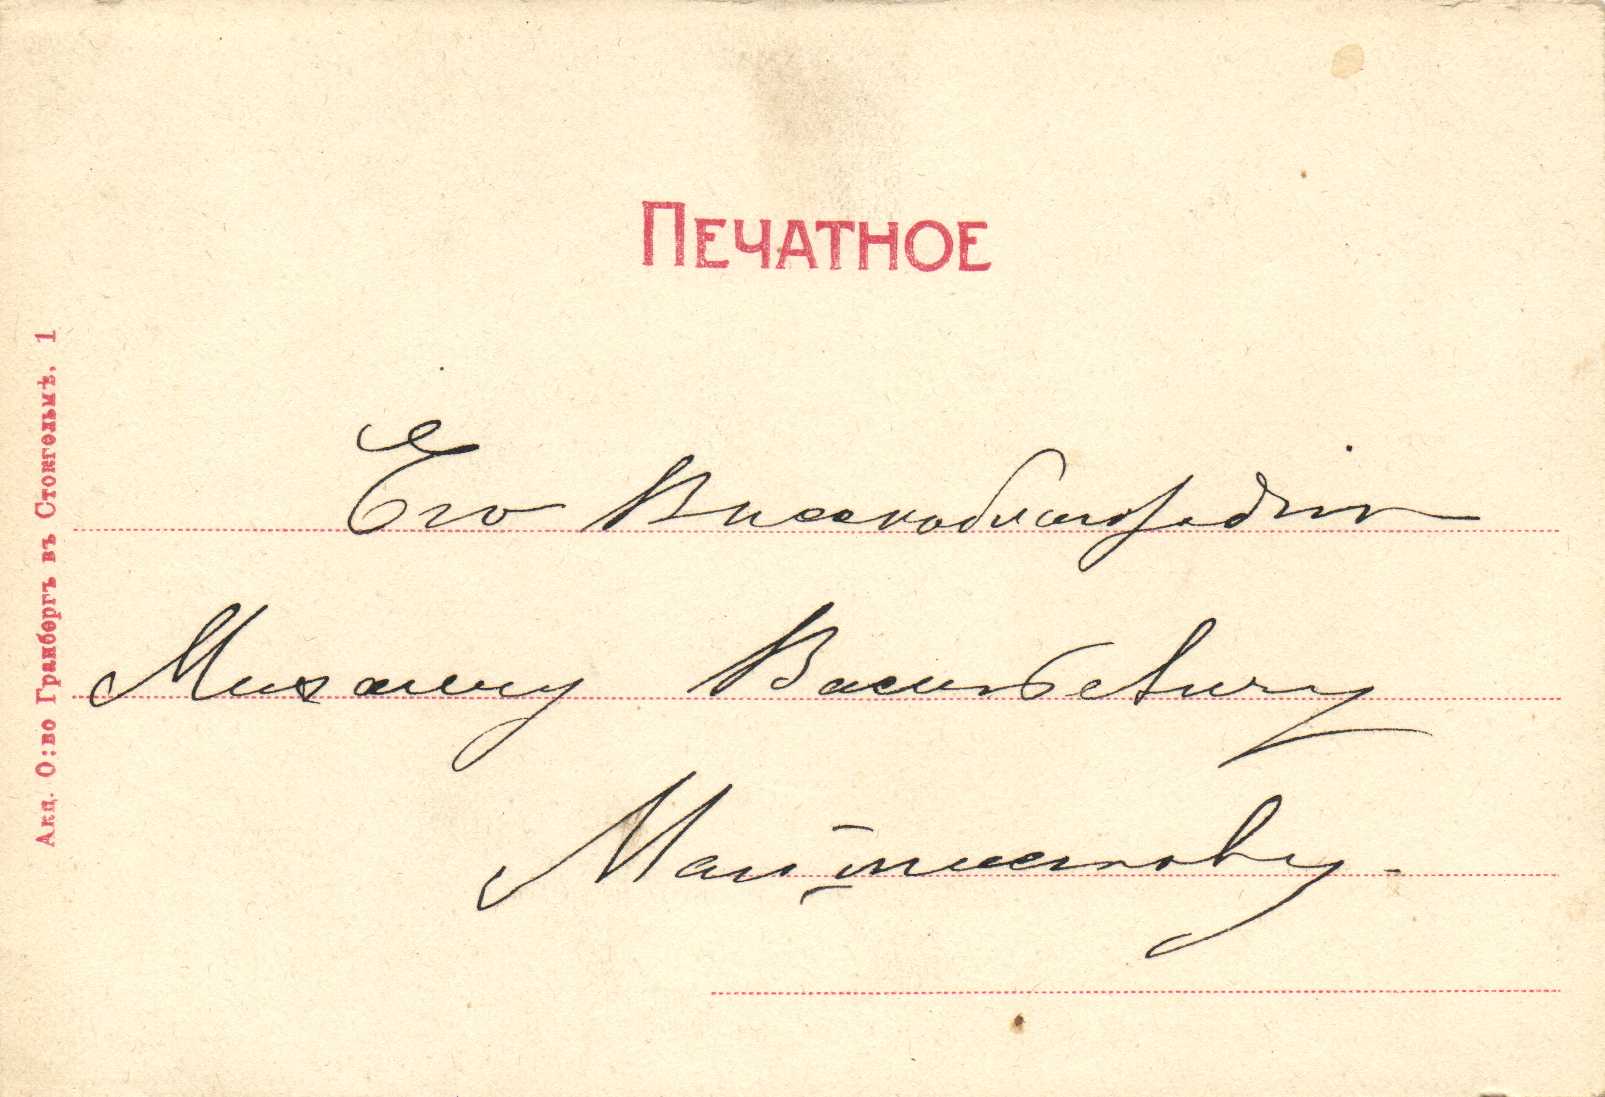 ПЕЧАТНОЕ
Его Высокоблагородію
Михаилу Васильевичу
Акц. О:во Гранбергъ въ Стокгольмѣ. 1